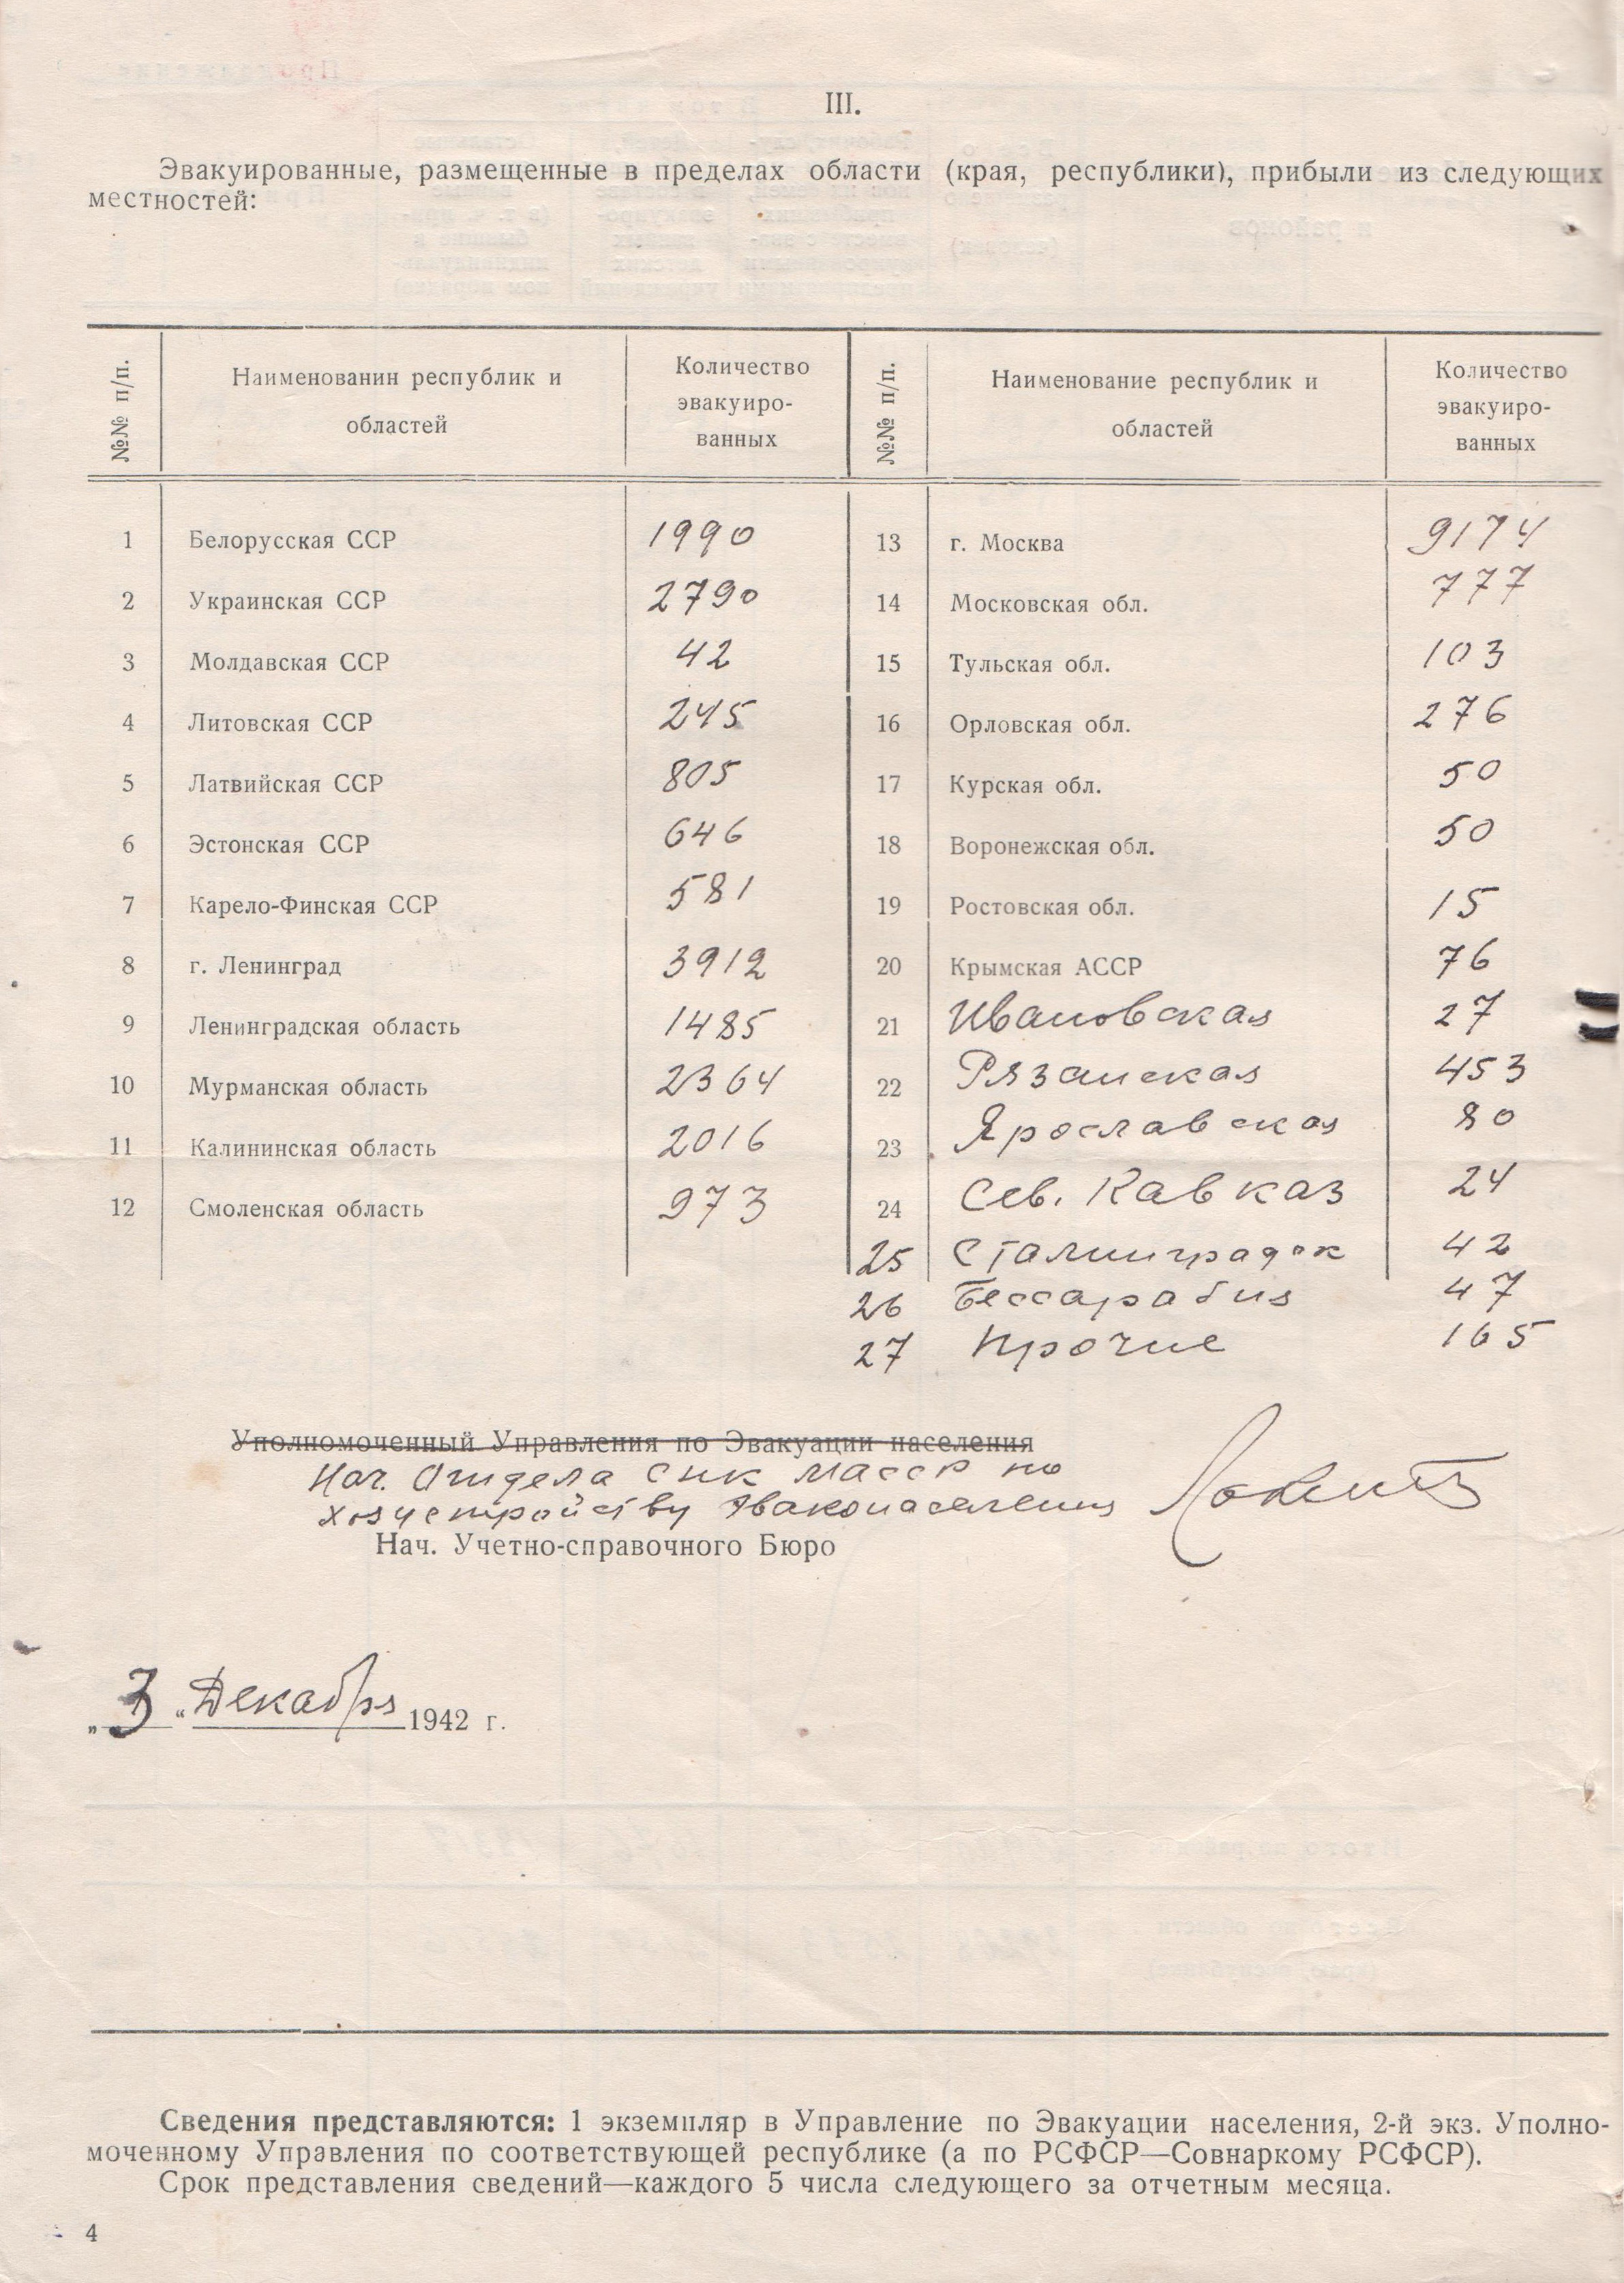 III.
Эвакуированные, размещенные в пределах области (края, республики), прибыли из следующих
местностей:
№№ п/п.
Наименованин республик и
областей
Количество
эвакуиро-
ванных
№№ п/п.
Наименование республик и
областей
Количество
эвакуиро-
ванных
1 Белорусская ССР 1990 13 г. Москва 9174
2 Украинская ССР 2790 14 Московская обл. 777
3 Молдавская ССР 42 15 Тульская обл. 103
4 Литовская ССР 245 16 Орловская обл. 276
5 Латвийская ССР 805 17 Курская обл. 50
6 Эстонская ССР 646 18 Воронежская обл. 50
7 Карело-Финская ССР 581 19 Ростовская обл. 15
8 г. Ленинград 3912 20 Крымская АССР 76
9 Ленинградская область 1485 21 Ивановская 27
10 Мурманская область 2364 22 Рязанская 453
11 Калининская область 2016 23 Ярославская 80
12 Смоленская область 973 24 Сев. Кавказ 24
25 Сталинградск 42
26 Бессарабия 47
27 Прочие 165
Уполномоченный Управления по Эвакуации населения
Нач. Отдела СНК МАССР по
хозустройству эваконаселения
Нач. Учетно-справочного Бюро
„3“ Декабря 1942 г.
Сведения представляются: 1 экземпляр в Управление по Эвакуации населения, 2-й экз. Уполно-
моченному Управления по соответствующей республике (а по РСФСР—Совнаркому РСФСР).
Срок представления сведений—каждого 5 числа следующего за отчетным месяца.
4